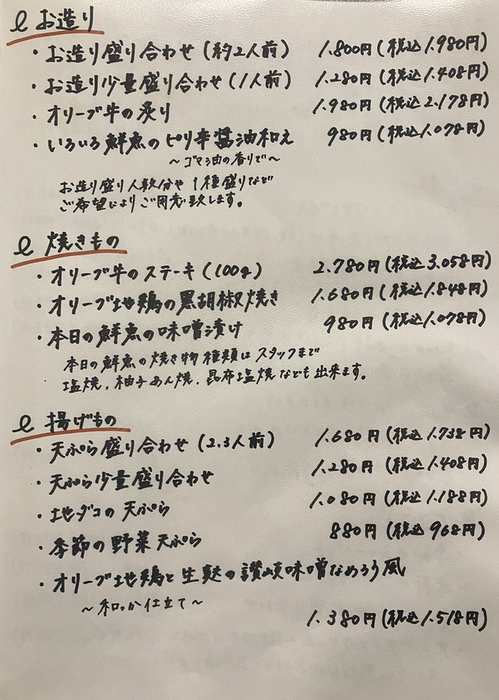 お造り
・お造り盛り合わせ（約2人前） 1.800円（税込1.980円）
・お造り少量盛り合わせ（1人前） 1.280円（税込1.408円）
・オリーブ牛の炙り 1.980円（税込2.178円）
・いろいろ鮮魚のピリ辛醤油和え 980円（税込1.078円）
〜ゴマ油の香りで〜
お造り盛り人数分や1種盛りなど
ご希望によりご用意致します。
焼きもの
・オリーブ牛のステーキ（100g） 2.780円（税込3.058円）
・オリーブ地鶏の黒胡椒焼き 1.680円（税込1.848円）
・本日の鮮魚の味噌漬け 980円（税込1.078円）
本日の鮮魚の焼き物種類はスタッフまで
塩焼、柚子あん焼、昆布塩焼なども出来ます。
揚げもの
・天ぷら盛り合わせ（2.3人前） 1.680円（税込1.738円）
・天ぷら少量盛り合わせ 1.280円（税込1.408円）
・地ダコの天ぷら 1.080円（税込1.188円）
・季節の野菜天ぷら 880円（税込968円）
・オリーブ地鶏と生麩の讃岐味噌なめろう風
〜和っか仕立て〜
1.380円（税込1.518円）